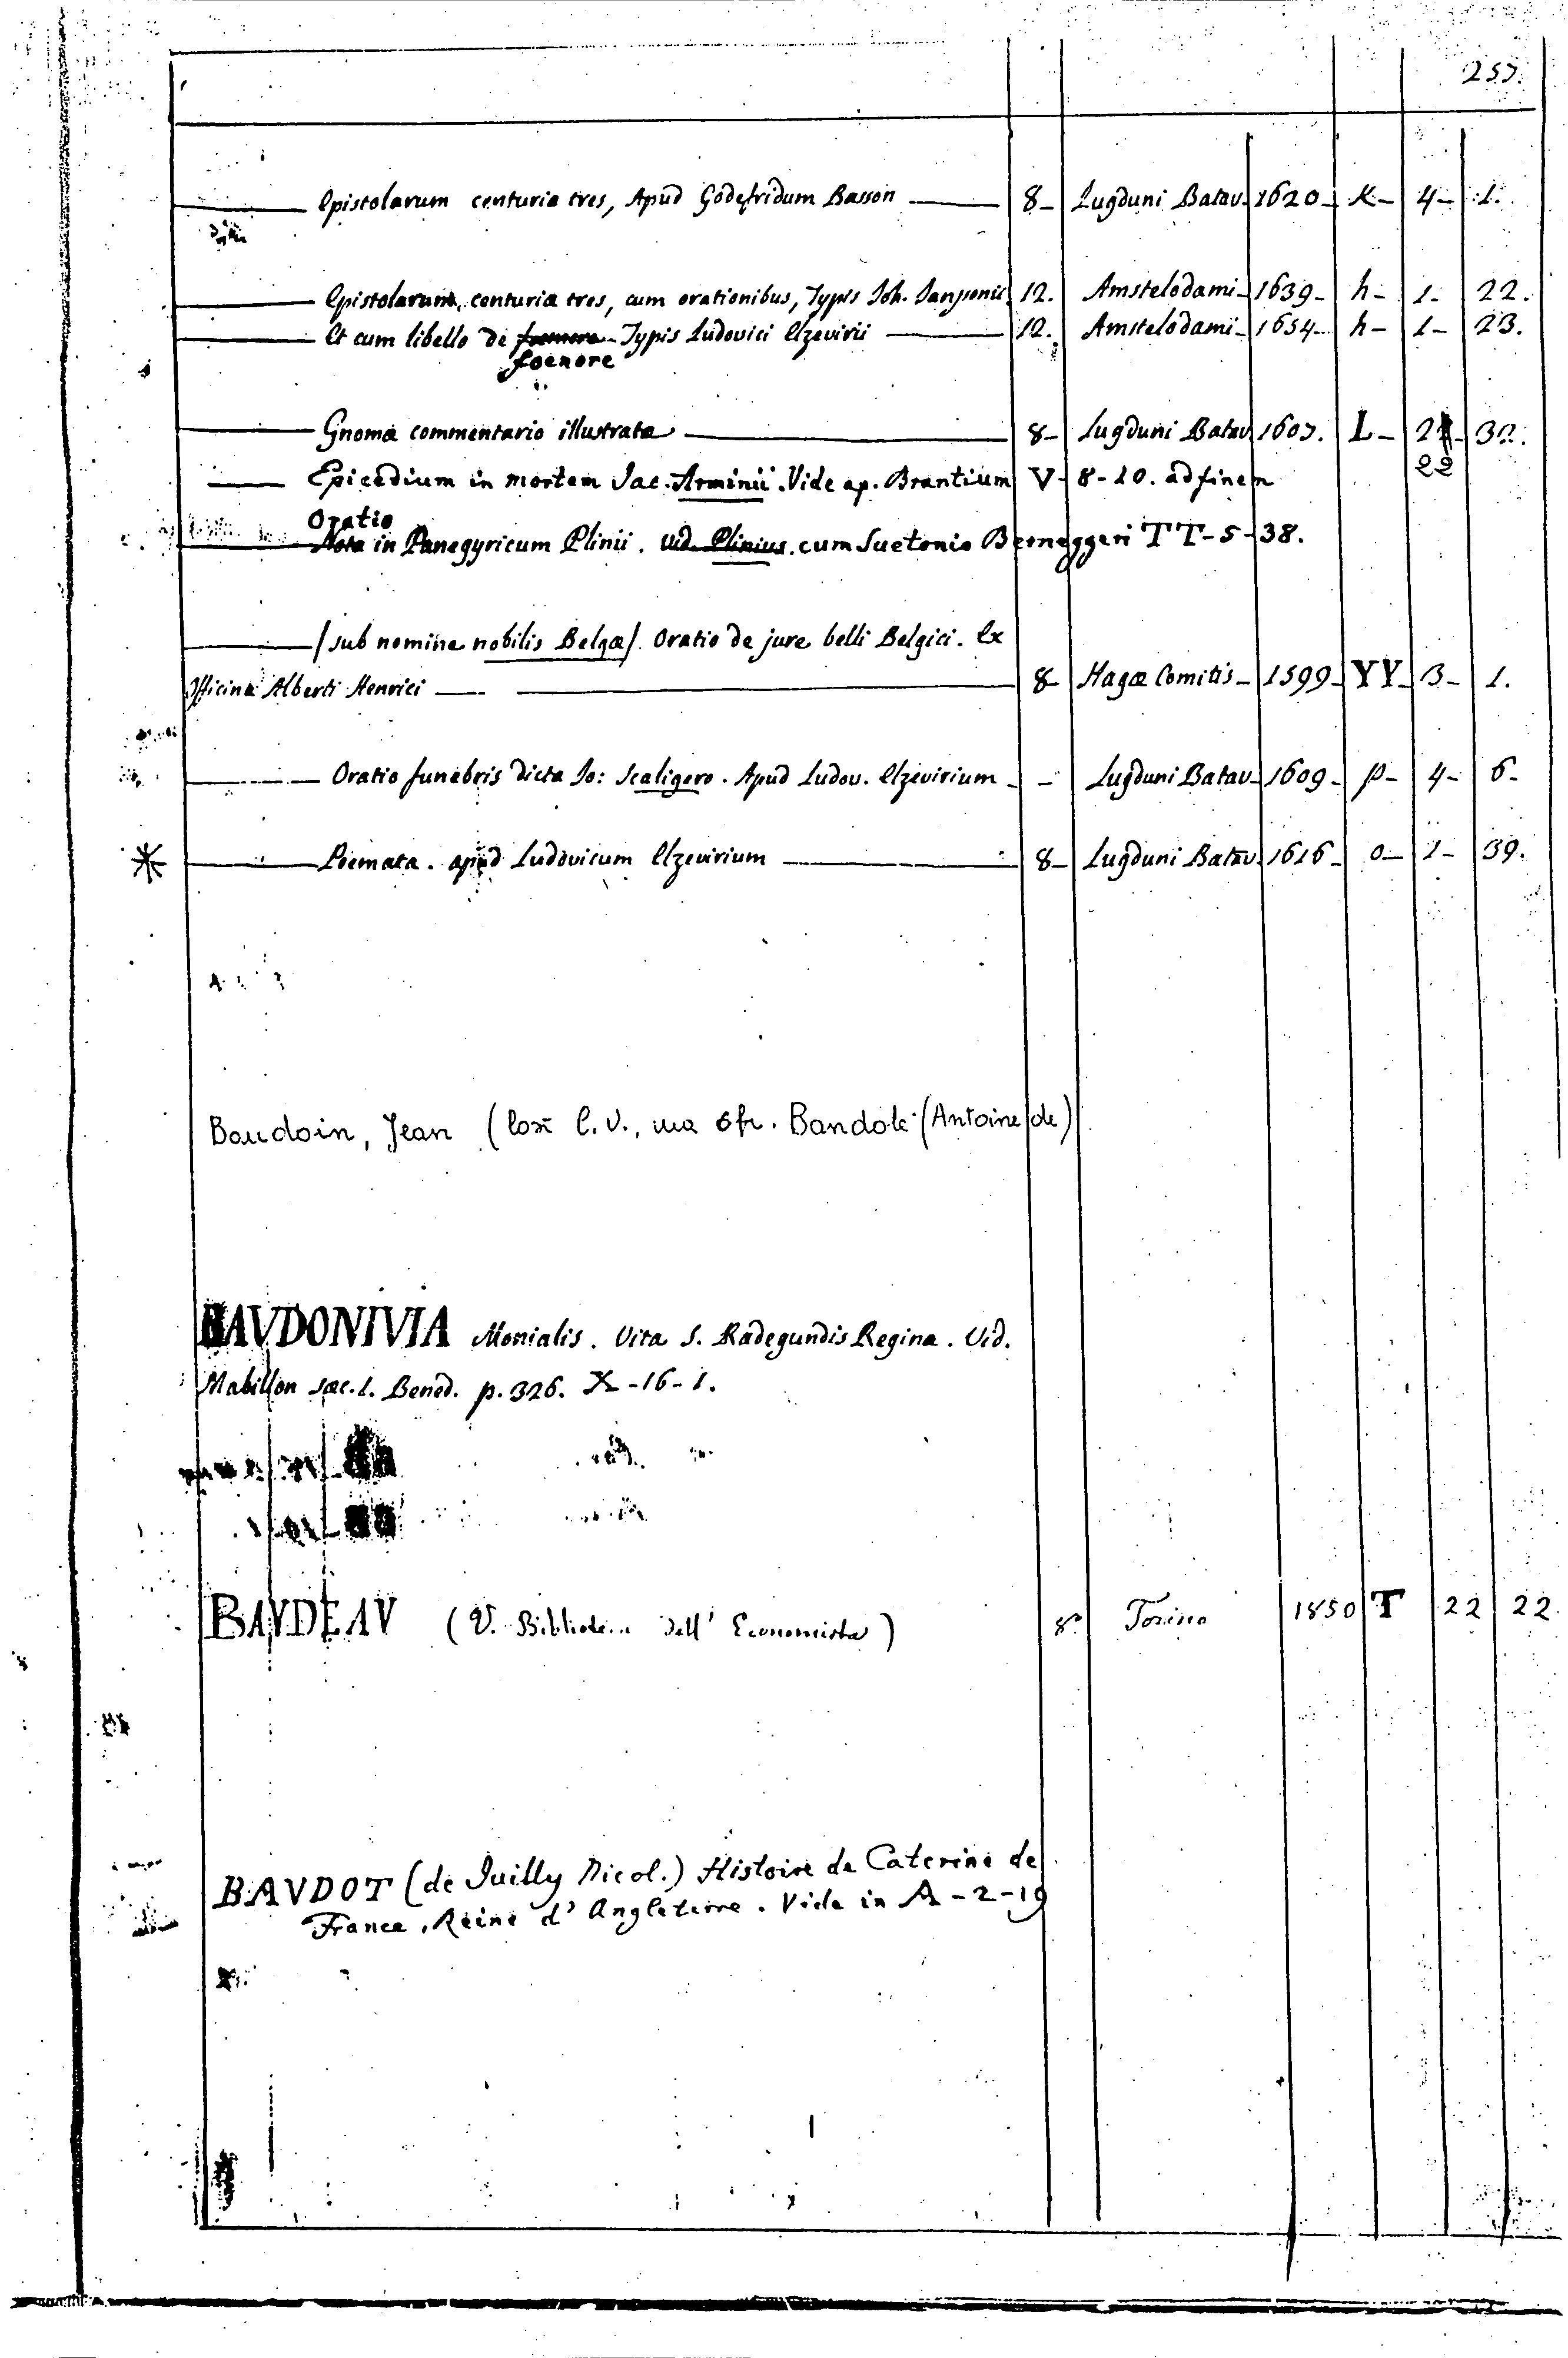 257.
——— Epistolarum centuriæ tres, Apud Godefridum Basson ——— 8— Lugduni Batav. 1620— K— 4— 1.
——— Epistolarum centuriæ tres, cum orationibus, Typis Joh. Jansonii 12. Amstelodami— 1639— h— 1— 22.
——— Et cum libello de Typis Ludovici Elzevirii ——— 12. Amstelodami— 1654— h— 1— 23.
foenore
——— Gnomæ commentario illustratæ ——— 8— Lugduni Batav 1607. L— 32.
22
——— Epicedium in mortem Jac. Arminii. Vide ap. Brantium V— 8-10. ad finem
Oratio
——— Nota in Panegyricum Plinii. vid. Plinius. cum Suetonio Berneggeri TT-5-38.
——— /sub nomine nobilis Belgæ/. Oratio de jure belli Belgici. Ex
Officina Alberti Henrici ——— 8— Hagæ Comitis— 1599— YY— 3— 1.
——— Oratio funebris dicta Jo: Scaligero. Apud Ludov. Elzevirium — — Lugduni Batav— 1609— p— 4— 6—
* ——— Poemata. apud Ludovicum Elzevirium ——— 8— Lugduni Batav. 1616— o— 1— 39.
Baudoin, Jean (così l. V., ma cfr. Bandole (Antoine de)
BAVDONIVIA Monialis. Vita S. Radegundis Reginæ. Vid.
Mabillon sæc. I. Bened. p. 326. X-16-1.
BAVDEAV (V. Biblioteca dell' Economista) 8° Torino 1850 T 22 22
BAVDOT (de Juilly Nicol.) Histoire de Caterine de
France, Reine d' Angleterre. Vide in A-2-19